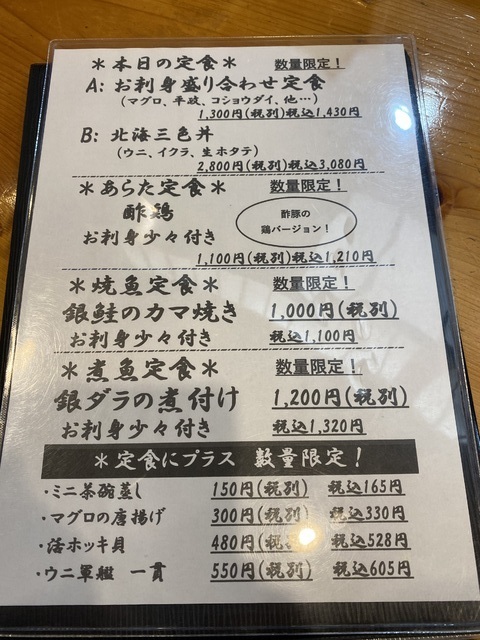 ＊本日の定食＊ 数量限定！
A: お刺身盛り合わせ定食
(マグロ、平政、コショウダイ、他…)
1,300円(税別)税込1,430円
B: 北海三色丼
(ウニ、イクラ、生ホタテ)
2,800円(税別)税込3,080円
＊あらた定食＊ 数量限定！
酢鶏
酢豚の
鶏バージョン！
お刺身少々付き
1,100円(税別)税込1,210円
＊焼魚定食＊ 数量限定！
銀鮭のカマ焼き 1,000円(税別)
お刺身少々付き 税込1,100円
＊煮魚定食＊ 数量限定！
銀ダラの煮付け 1,200円(税別)
お刺身少々付き 税込1,320円
＊定食にプラス 数量限定！
・ミニ茶碗蒸し 150円(税別) 税込165円
・マグロの唐揚げ 300円(税別) 税込330円
・活ホッキ貝 480円(税別) 税込528円
・ウニ軍艦 一貫 550円(税別) 税込605円